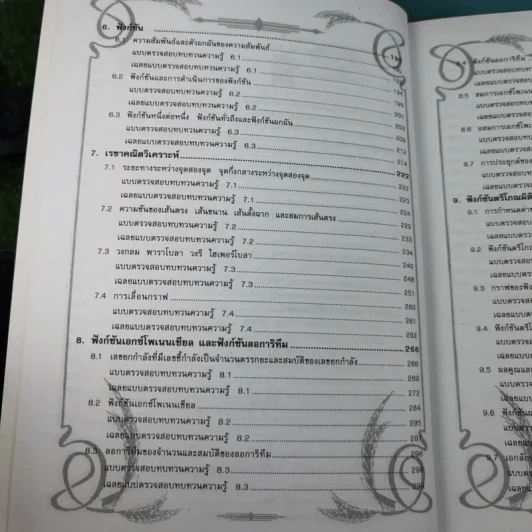 6. ฟังก์ชัน
6.1 ความสัมพันธ์และตัวผกผันของความสัมพันธ์
แบบตรวจสอบทบทวนความรู้ 6.1
เฉลยแบบตรวจสอบทบทวนความรู้ 6.1
6.2 ฟังก์ชันและการดำเนินการของฟังก์ชัน 194
แบบตรวจสอบทบทวนความรู้ 6.2 199
เฉลยแบบตรวจสอบทบทวนความรู้ 6.2 201
6.3 ฟังก์ชันหนึ่งต่อหนึ่ง ฟังก์ชันทั่วถึงและฟังก์ชันผกผัน
แบบตรวจสอบทบทวนความรู้ 6.3 212
เฉลยแบบตรวจสอบทบทวนความรู้ 6.3 214
7. เรขาคณิตวิเคราะห์ 222
7.1 ระยะทางระหว่างจุดสองจุด จุดกึ่งกลางระหว่างจุดสองจุด 222
แบบตรวจสอบทบทวนความรู้ 7.1 223
เฉลยแบบตรวจสอบทบทวนความรู้ 7.1 224
7.2 ความชันของเส้นตรง เส้นขนาน เส้นตั้งฉาก และสมการเส้นตรง 229
แบบตรวจสอบทบทวนความรู้ 7.2 233
เฉลยแบบตรวจสอบทบทวนความรู้ 7.2 234
7.3 วงกลม พาราโบลา วงรี ไฮเพอร์โบลา 240
แบบตรวจสอบทบทวนความรู้ 7.3 248
เฉลยแบบตรวจสอบทบทวนความรู้ 7.3 251
7.4 การเลื่อนกราฟ 260
แบบตรวจสอบทบทวนความรู้ 7.4 261
เฉลยแบบตรวจสอบทบทวนความรู้ 7.4 262
8. ฟังก์ชันเอกซ์โพเนนเชียล และฟังก์ชันลอการิทึม 266
8.1 เลขยกกำลังที่มีเลขชี้กำลังเป็นจำนวนตรรกยะและสมบัติของเลขยกกำลัง 266
แบบตรวจสอบทบทวนความรู้ 8.1 269
เฉลยแบบตรวจสอบทบทวนความรู้ 8.1 273
8.2 ฟังก์ชันเอกซ์โพเนนเชียล 284
แบบตรวจสอบทบทวนความรู้ 8.2 285
เฉลยแบบตรวจสอบทบทวนความรู้ 8.2
8.3 ลอการิทึมของจำนวนและสมบัติของลอการิทึม 296
แบบตรวจสอบทบทวนความรู้ 8.3
เฉลยแบบตรวจสอบทบทวนความรู้ 8.3
8.4 ฟังก์ชันลอการิทึม
แบบตรวจสอบ
เฉลยแบบตรว
8.5 สมการเอกซ์โพเนน
แบบตรวจสอบ
เฉลยแบบตรว
8.6 อสมการเอกซ์โพเ
แบบตรวจสอบ
เฉลยแบบตร
8.7 การประยุกต์ของ
แบบตรวจสอ
เฉลยแบบต
9. ฟังก์ชันตรีโกณมิติ
9.1 การกำหนดค่าข
แบบตรวจส
เฉลยแบบ
9.2 ฟังก์ชันตรีโก
แบบตรวจ
เฉลยแบบ
9.3 กราฟของฟัง
แบบตรวจ
เฉลยแบบ
9.4 ฟังก์ชันตรีโ
แบบตรว
เฉลยแบ
9.5 ผลคูณและ
แบบตรว
เฉลยแบ
9.6 ฟังก์ชันผ
แบบตร
เฉลยแ
9.7 เอกลัก
แบบต
เฉลย